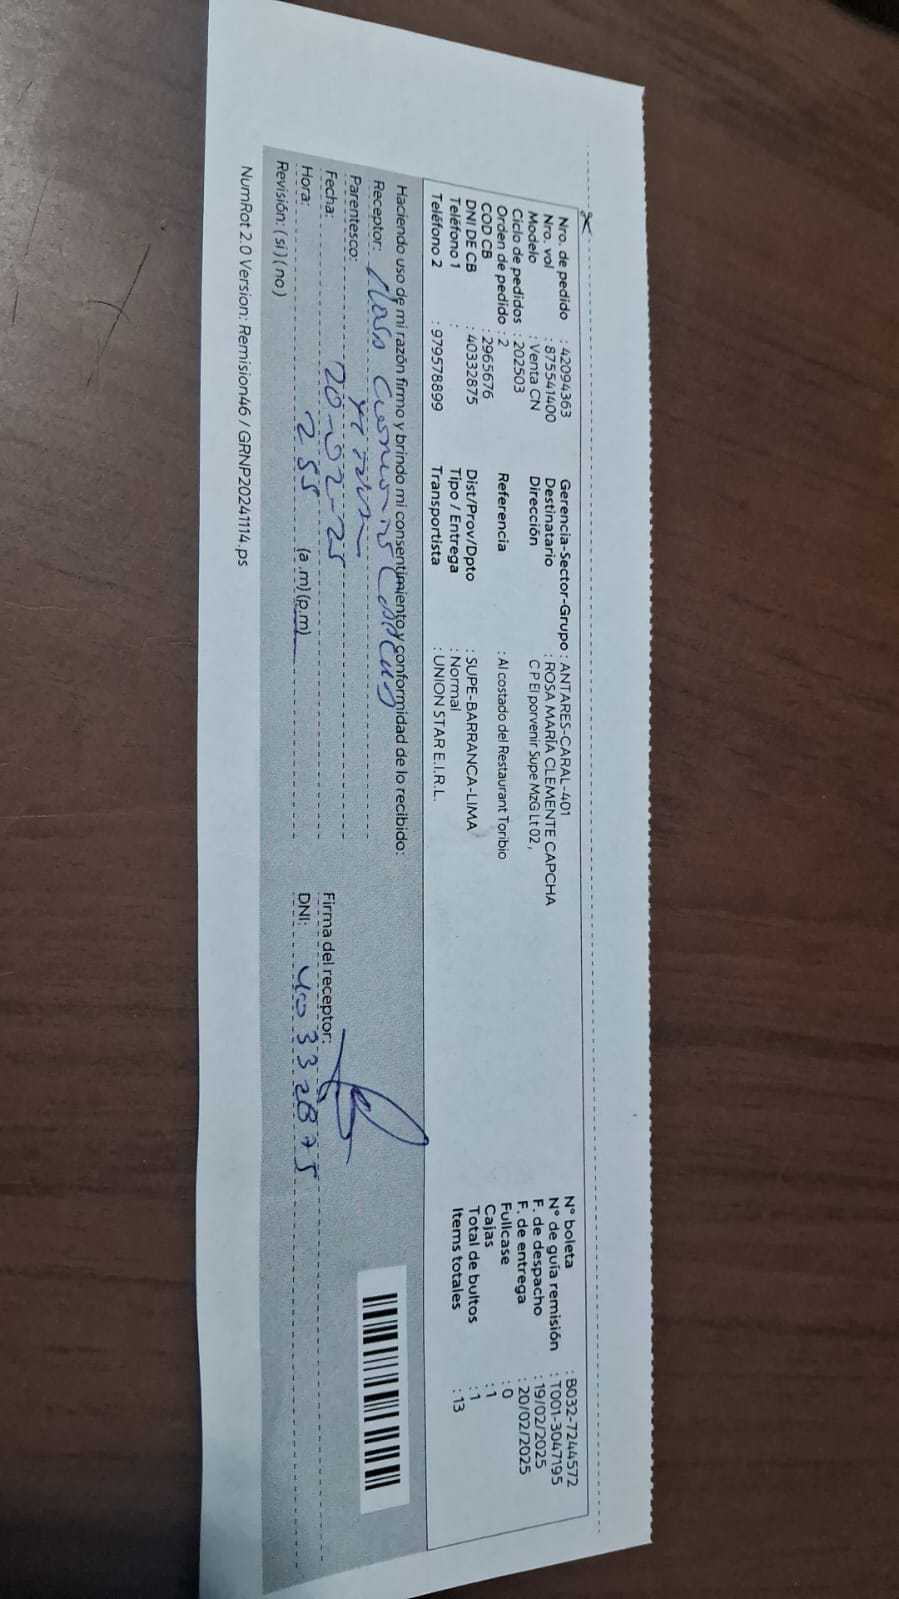 Nro. de pedido : 42094363 Gerencia-Sector-Grupo : ANTARES-CARAL-401 N° boleta : B032-7244572
Nro. vol : 875541400 Destinatario : ROSA MARÍA CLEMENTE CAPCHA N° de guía remisión : T001-3047195
Modelo : Venta CN Dirección C P El porvenir Supe MzG Lt 02, F. de despacho : 19/02/2025
Ciclo de pedidos : 202503 F. de entrega : 20/02/2025
Orden de pedido : 2 Referencia : Al costado del Restaurant Toribio Fullcase : 0
COD CB : 2965676 Cajas : 1
DNI DE CB : 40332875 Dist/Prov/Dpto : SUPE-BARRANCA-LIMA Total de bultos : 1
Teléfono 1 : Tipo / Entrega : Normal Items totales : 13
Teléfono 2 : 979578899 Transportista : UNION STAR E.I.R.L.
Haciendo uso de mi razón firmo y brindo mi consentimiento y conformidad de lo recibido:
Receptor:
Parentesco:
Fecha: 20-02-25 Firma del receptor:
Hora: 2 55 (a.m)(p.m) DNI: 40332875
Revisión: (si) (no)
NumRot 2.0 Version: Remision46 / GRNP20241114.ps